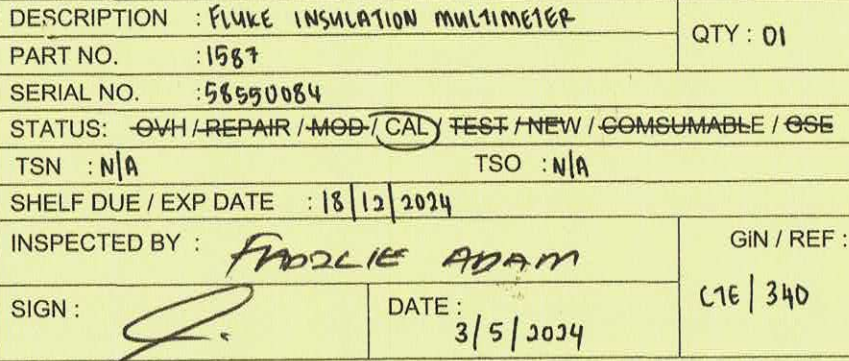 DESCRIPTION : FLUKE INSULATION MULTIMETER
QTY : 01
PART NO. : 1587
SERIAL NO. : 58550084
STATUS: OVH / REPAIR / MOD / CAL / TEST / NEW / COMSUMABLE / GSE
TSN : N/A TSO : N/A
SHELF DUE / EXP DATE : 18/12/2024
INSPECTED BY : FADZLIE ADAM
GiN / REF :
CTE / 340
SIGN :
DATE :
3/5/2024